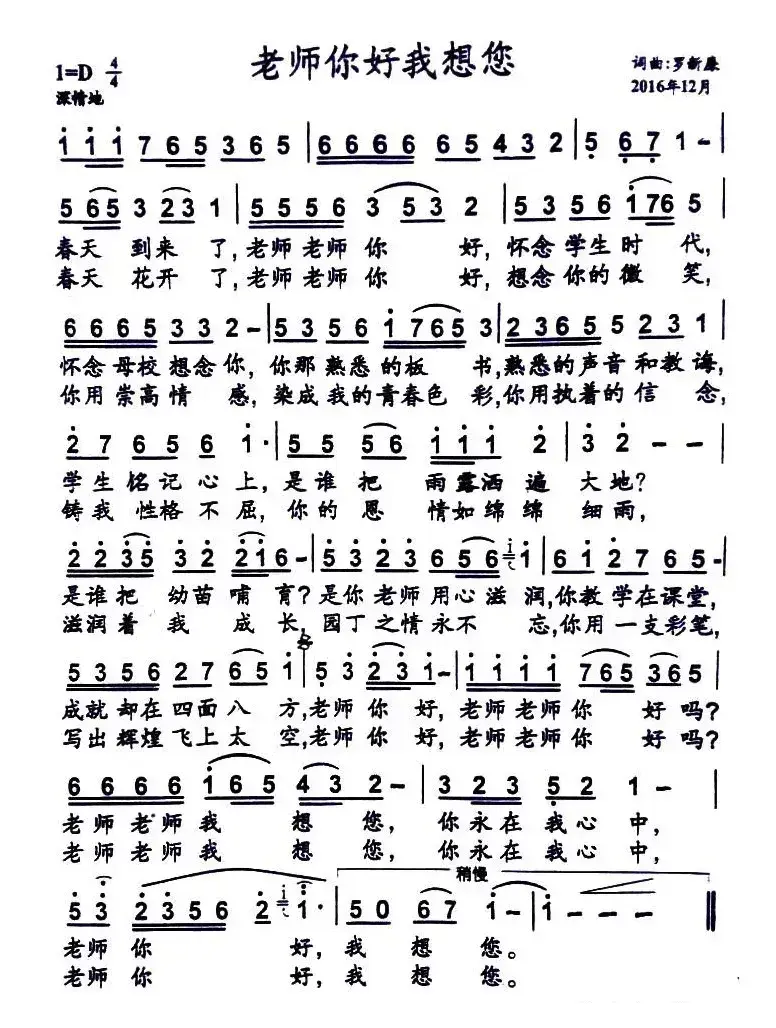 老师你好我想您
1=D 4/4
深情地
词曲:罗新廉
2016年12月
1 1 1 7 6 5 3 6 5 | 6 6 6 6 6 5 4 3 2 | 5 6 7 1 – |
5 6 5 3 2 3 1 | 5 5 5 6 3 5 3 2 | 5 3 5 6 1 7 6 5 |
春天 到来 了,老师老师你 好,怀念学生时 代,
春天 花开 了,老师老师你 好,想念你的微 笑,
6 6 6 5 3 3 2 – | 5 3 5 6 1 7 6 5 3 | 2 3 6 5 5 2 3 1 |
怀念母校想念你,你那熟悉的板 书,熟悉的声音和教诲,
你用崇高情 感,染成我的青春色 彩,你用执着的信 念,
2 7 6 5 6 1 · | 5 5 5 6 1 1 1 2 | 3 2 – – |
学生铭记心上,是谁把 雨露洒遍 大地?
铸我性格不屈,你的恩 情如绵绵 细雨,
2 2 3 5 3 2 2 1 6 – | 5 3 2 3 6 5 6 i 1 | 6 1 2 7 6 5 – |
是谁把 幼苗哺 育?是你老师用心滋 润,你教学在课堂,
滋润着 我 成 长,园丁之情永不 忘,你用一支彩笔,
5 3 5 6 2 7 6 5 1 | 5 3 2 3 1 – | 1 1 1 1 7 6 5 3 6 5 |
成就却在四面八 方,老师你 好,老师老师你 好吗?
写出辉煌飞上太 空,老师你 好,老师老师你 好吗?
6 6 6 6 1 6 5 4 3 2 – | 3 2 3 5 2 1 – |
老师老师我 想 您, 你永在我心中,
老师老师我 想 您, 你永在我心中,
稍慢
5 3 2 3 5 6 2 i 1 · | 5 0 6 7 1 – | 1 – – – ‖
老师你 好,我 想 您。
老师你 好,我 想 您。